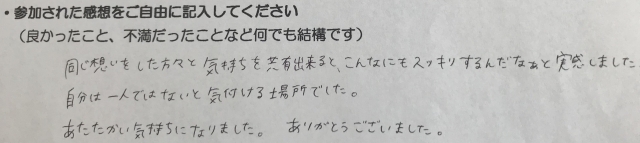 ・参加された感想をご自由に記入してください
（良かったこと、不満だったことなど何でも結構です）
同じ想いをした方々と気持ちを共有出来ると、こんなにもスッキリするんだなぁと実感しました
自分は一人ではないと気付ける場所でした。
あたたかい気持ちになりました。 ありがとうございました。